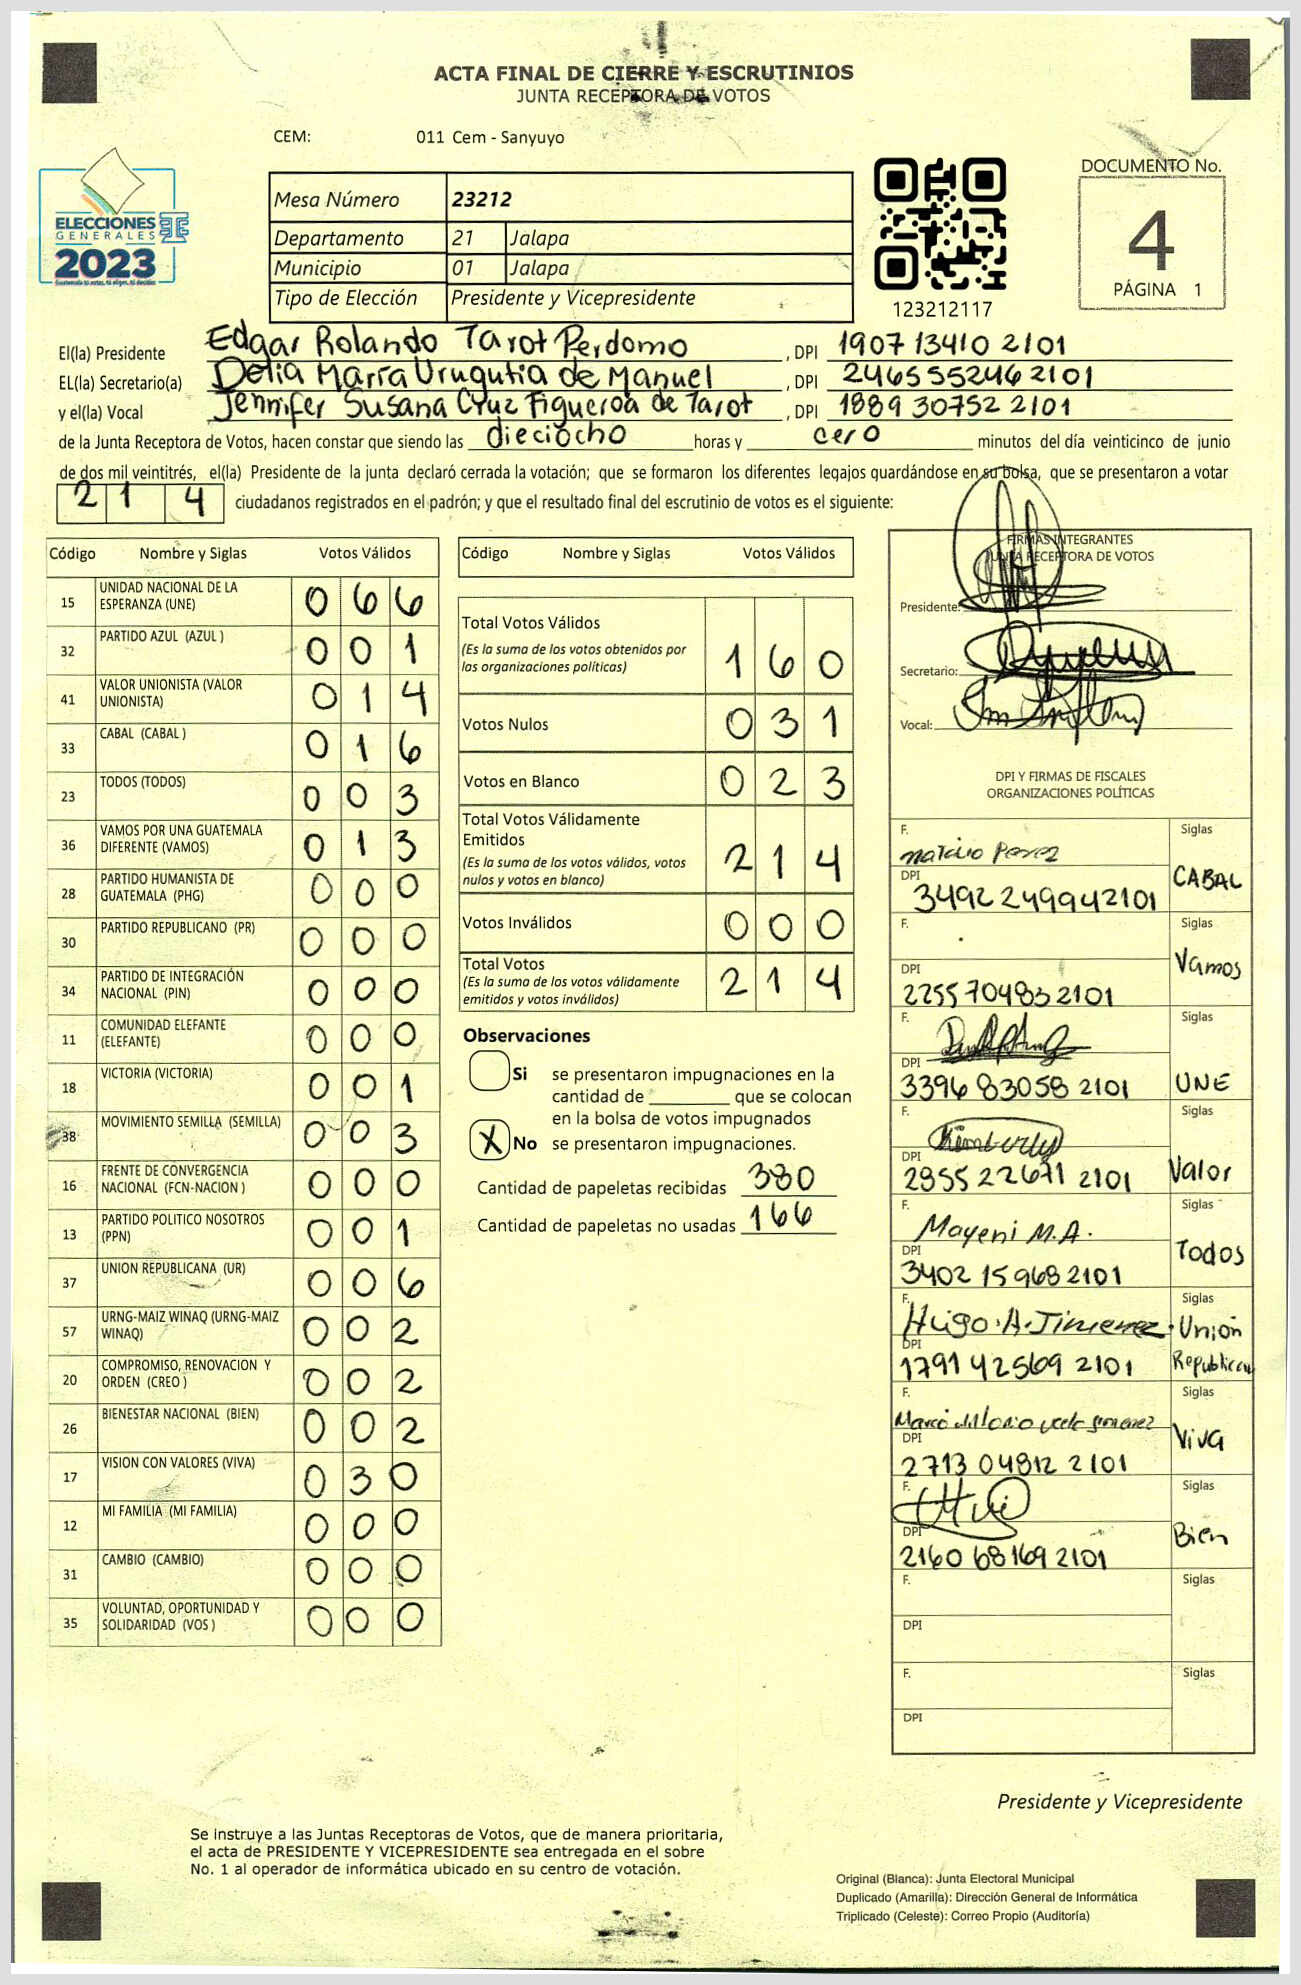 ACTA FINAL DE CIERRE Y ESCRUTINIOS
JUNTA RECEPTORA DE VOTOS
CEM: 011 Cem - Sanyuyo
ELECCIONES
GENERALES
2023
Mesa Número 23212
Departamento 21 Jalapa
Municipio 01 Jalapa
Tipo de Elección Presidente y Vicepresidente
123212117
DOCUMENTO No.
4
PÁGINA 1
El(la) Presidente Edgar Rolando Tarot Perdomo, DPI 1907 13410 2101
EL(la) Secretario(a) Delia María Urugutia de Manuel, DPI 2465552462101
y el(la) Vocal Jennifer Susana Cruz Figueroa de Tarot, DPI 1889 30752 2101
de la Junta Receptora de Votos, hacen constar que siendo las dieciocho horas y cero minutos del día veinticinco de junio
de dos mil veintitrés, el(la) Presidente de la junta declaró cerrada la votación; que se formaron los diferentes legajos guardándose en su bolsa, que se presentaron a votar
2 1 4 ciudadanos registrados en el padrón; y que el resultado final del escrutinio de votos es el siguiente:
Código Nombre y Siglas Votos Válidos
15 UNIDAD NACIONAL DE LA ESPERANZA (UNE) 0 6 6
32 PARTIDO AZUL (AZUL ) 0 0 1
41 VALOR UNIONISTA (VALOR UNIONISTA) 0 1 4
33 CABAL (CABAL ) 0 1 6
23 TODOS (TODOS) 0 0 3
36 VAMOS POR UNA GUATEMALA DIFERENTE (VAMOS) 0 1 3
28 PARTIDO HUMANISTA DE GUATEMALA (PHG) 0 0 0
30 PARTIDO REPUBLICANO (PR) 0 0 0
34 PARTIDO DE INTEGRACIÓN NACIONAL (PIN) 0 0 0
11 COMUNIDAD ELEFANTE (ELEFANTE) 0 0 0
18 VICTORIA (VICTORIA) 0 0 1
38 MOVIMIENTO SEMILLA (SEMILLA) 0 0 3
16 FRENTE DE CONVERGENCIA NACIONAL (FCN-NACION ) 0 0 0
13 PARTIDO POLITICO NOSOTROS (PPN) 0 0 1
37 UNION REPUBLICANA (UR) 0 0 6
57 URNG-MAIZ WINAQ (URNG-MAIZ WINAQ) 0 0 2
20 COMPROMISO, RENOVACION Y ORDEN (CREO ) 0 0 2
26 BIENESTAR NACIONAL (BIEN) 0 0 2
17 VISION CON VALORES (VIVA) 0 3 0
12 MI FAMILIA (MI FAMILIA) 0 0 0
31 CAMBIO (CAMBIO) 0 0 0
35 VOLUNTAD, OPORTUNIDAD Y SOLIDARIDAD (VOS ) 0 0 0
Código Nombre y Siglas Votos Válidos
Total Votos Válidos
(Es la suma de los votos obtenidos por
las organizaciones políticas) 1 6 0
Votos Nulos 0 3 1
Votos en Blanco 0 2 3
Total Votos Válidamente
Emitidos
(Es la suma de los votos válidos, votos
nulos y votos en blanco) 2 1 4
Votos Inválidos 0 0 0
Total Votos
(Es la suma de los votos válidamente
emitidos y votos inválidos) 2 1 4
Observaciones
Si se presentaron impugnaciones en la
cantidad de ________ que se colocan
en la bolsa de votos impugnados
X No se presentaron impugnaciones.
Cantidad de papeletas recibidas 380
Cantidad de papeletas no usadas 166
FIRMAS INTEGRANTES
JUNTA RECEPTORA DE VOTOS
Presidente:
Secretario:
Vocal:
DPI Y FIRMAS DE FISCALES
ORGANIZACIONES POLÍTICAS
F. Perez Siglas
DPI 3492 249942101 CABAL
F. Siglas
DPI 2255704832101 Vamos
F. Siglas
DPI 3396 83058 2101 UNE
F. Kimberly Siglas
DPI 2955 22671 2101 Valor
F. Mayeni M.A. Siglas
DPI 3402 15968 2101 Todos
F. Hugo A. Jimenez Siglas
DPI 1791 42569 2101 Union Republicana
F. Marco Siglas
DPI 2713 04812 2101 Viva
F. Siglas
DPI 2160 68169 2101 Bien
F. Siglas
DPI
F. Siglas
DPI
Presidente y Vicepresidente
Se instruye a las Juntas Receptoras de Votos, que de manera prioritaria,
el acta de PRESIDENTE Y VICEPRESIDENTE sea entregada en el sobre
No. 1 al operador de informática ubicado en su centro de votación.
Original (Blanca): Junta Electoral Municipal
Duplicado (Amarilla): Dirección General de Informática
Triplicado (Celeste): Correo Propio (Auditoría)